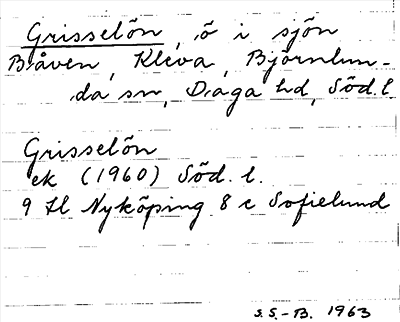 Grisselön, ö i sjön
Båven, Kleva, Björnlun-
da sn, Daga hd, Söd. l.
Grisselön
ek (1960) Söd. l.
9 H Nyköping 8 c Sofielund
S.S.-B. 1963